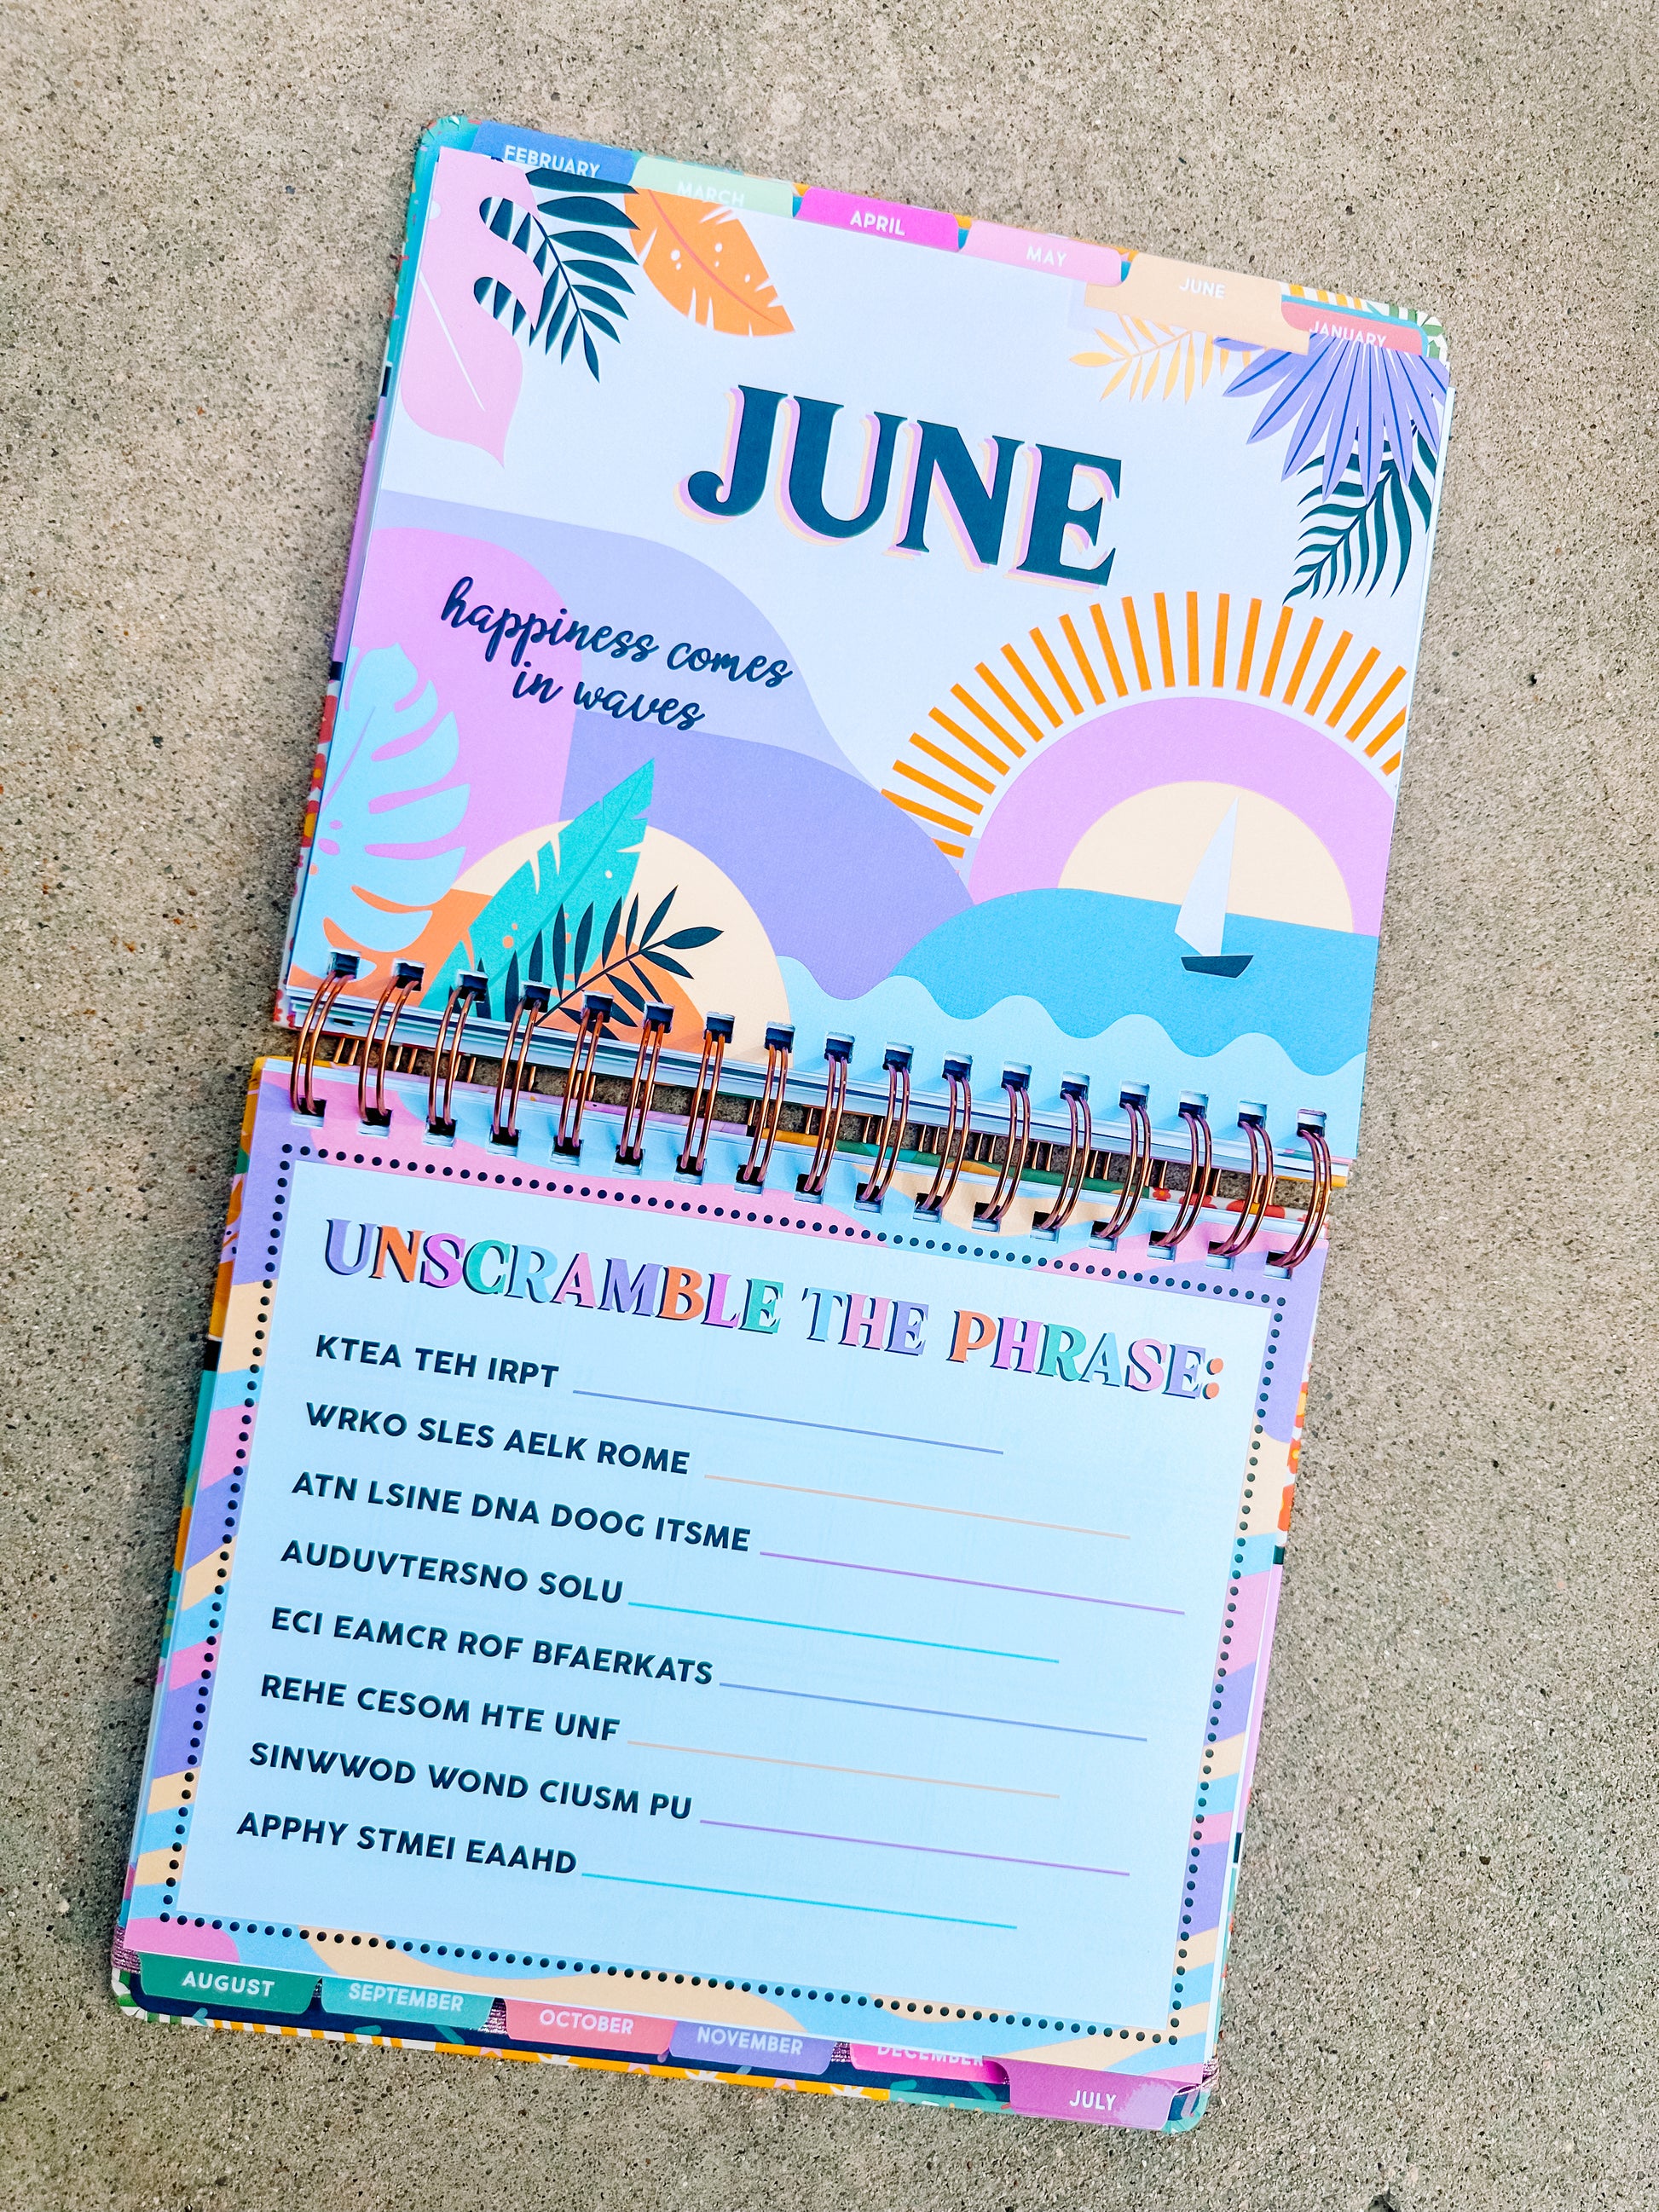 FEBRUARY
MARCH
APRIL
MAY
JUNE
JANUARY
JUNE
happiness comes
in waves
UNSCRAMBLE THE PHRASE:
KTEA TEH IRPT
WRKO SLES AELK ROME
ATN LSINE DNA DOOG ITSME
AUDUVTERSNO SOLU
ECI EAMCR ROF BFAERKATS
REHE CESOM HTE UNF
SINWWOD WOND CIUSM PU
APPHY STMEI EAAHD
AUGUST
SEPTEMBER
OCTOBER
NOVEMBER
DECEMBER
JULY